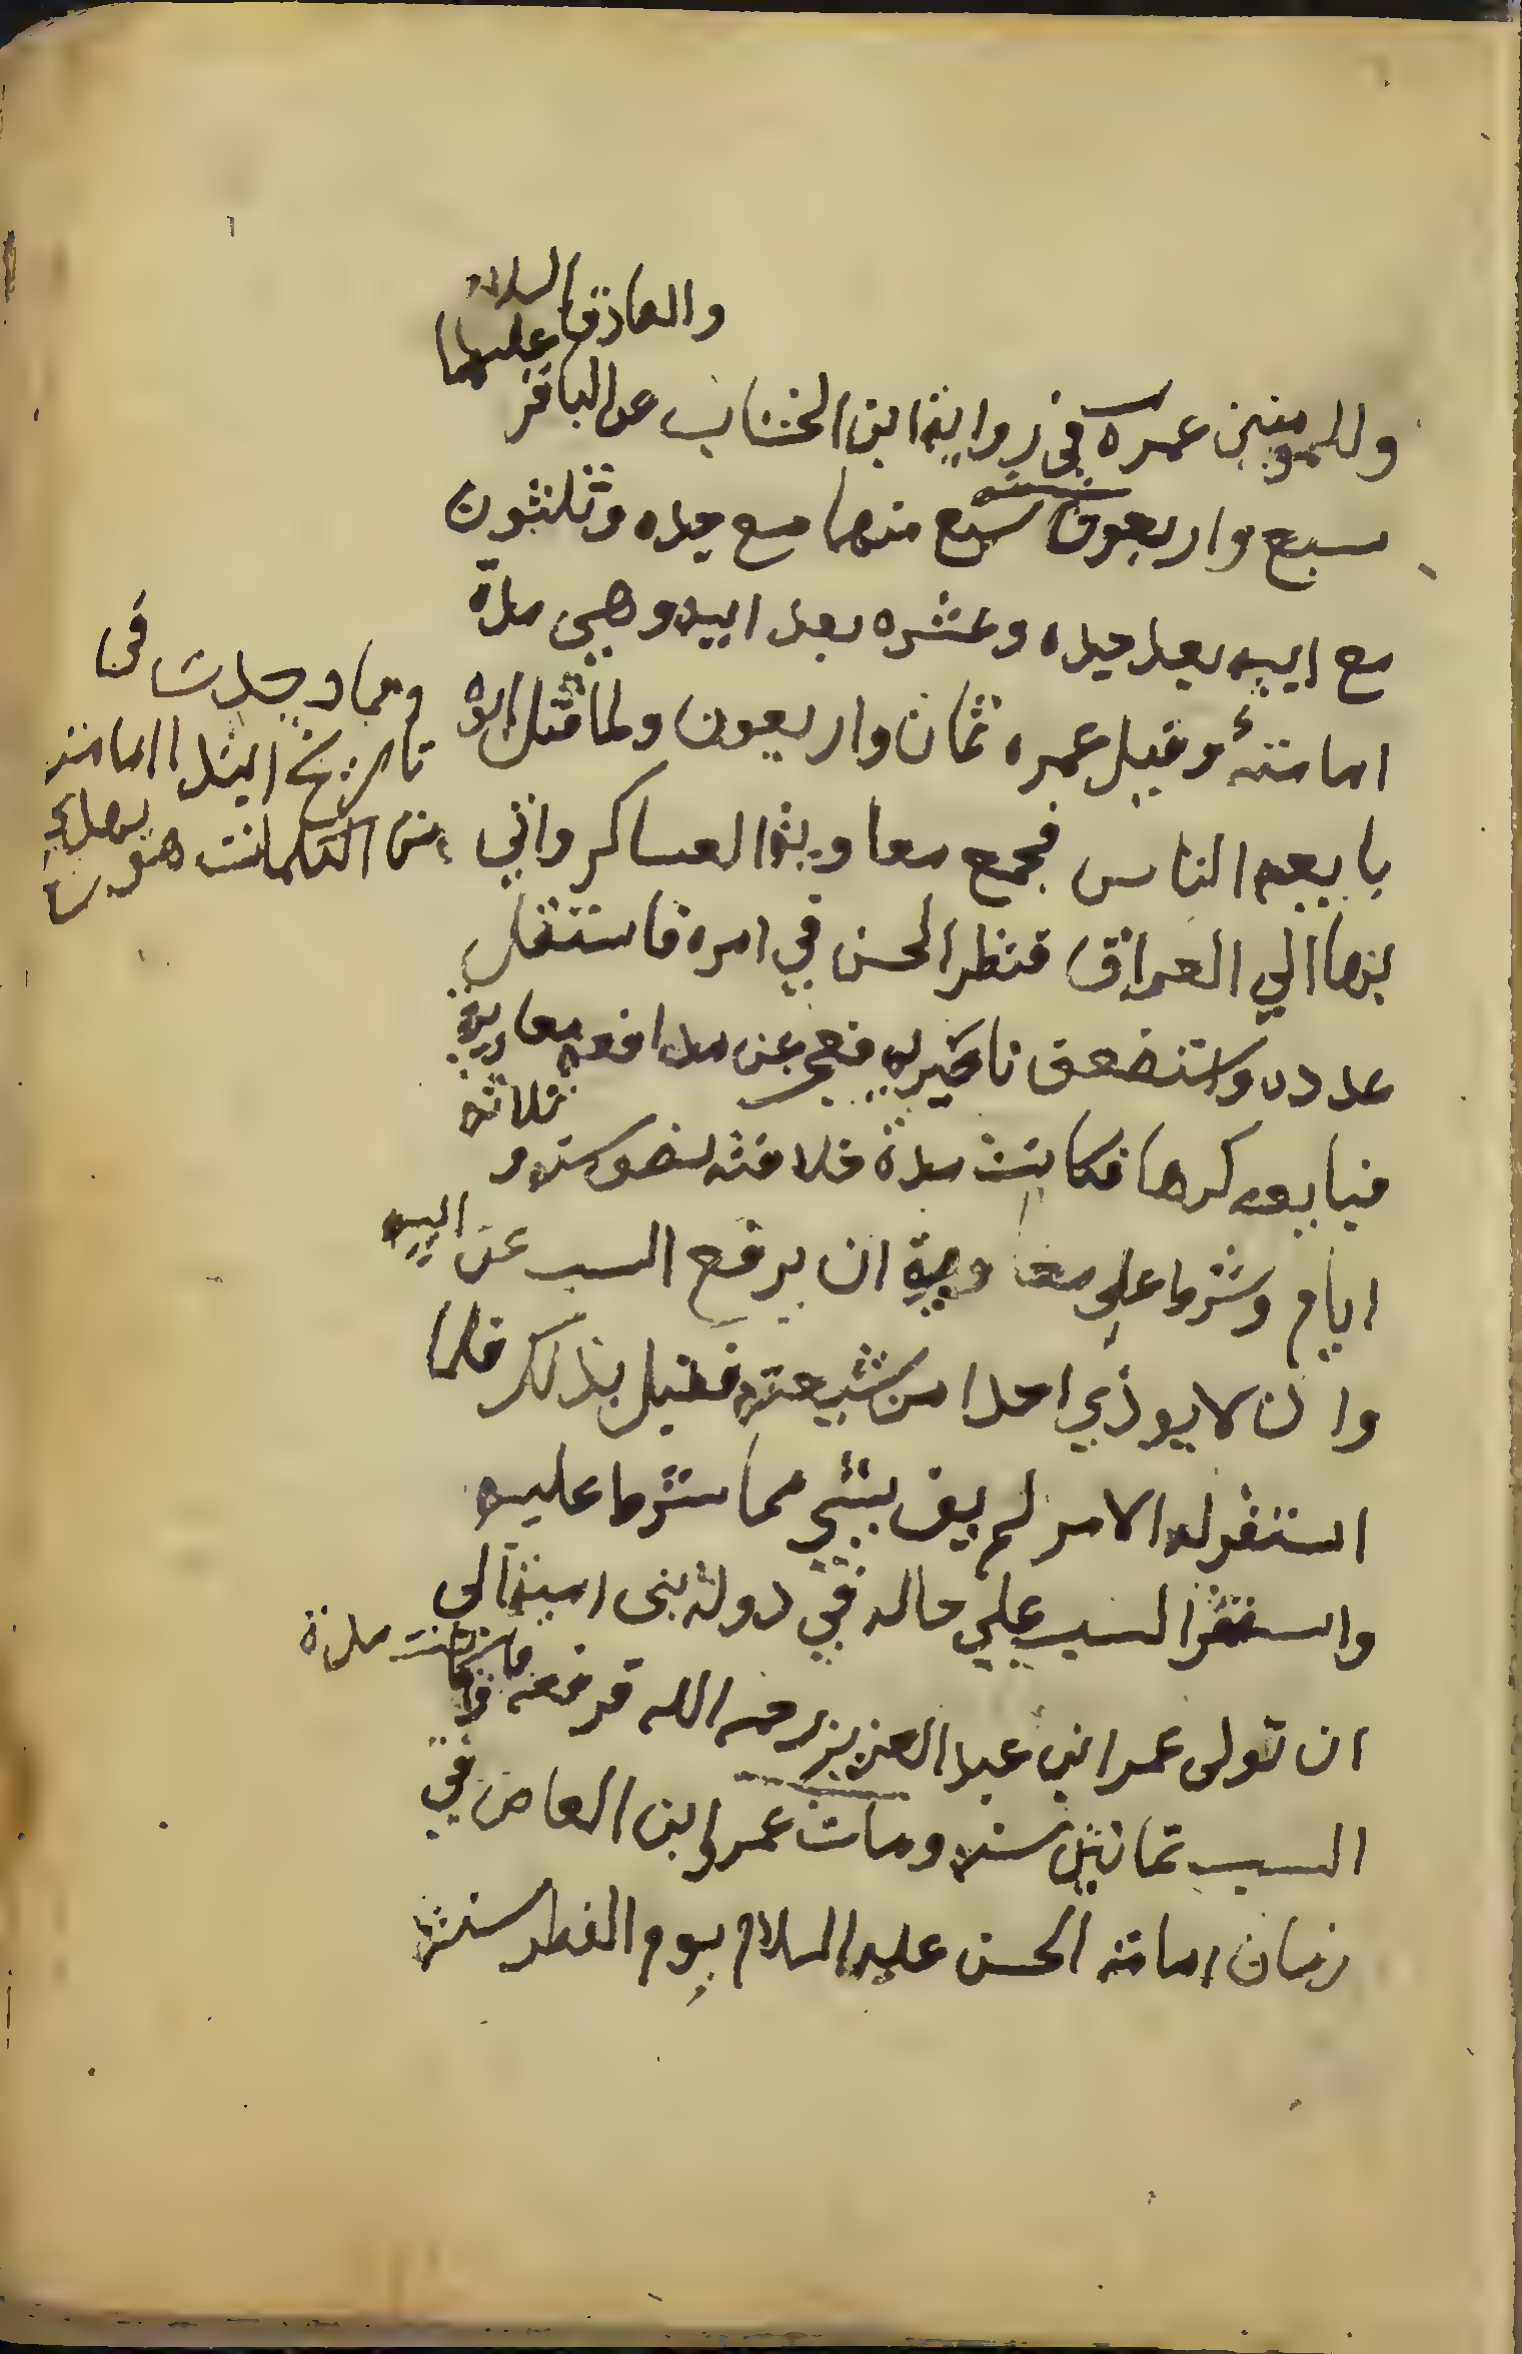 والصادق عليهما السلام
وللمومنين عمره في رواية ابن الخشاب عن الباقر
سبع واربعون سنه سبع منها مع جده وثلثون
مع ابيه بعد جده وعشره بعد ابيه وهي مدة
امامته وقيل عمره ثمان واربعون ولما قتل ابوه
بايعه الناس فجمع معاوية العساكر واتي
بها الي العراق فنظر الحسن في امره فاستقل
عدده واستضعف ناصريه فعجز عن مدافعة معاوية
فبايعه كرها فكانت مدة خلافته نحو ستة وثلاثه
ايام وشرط على معاوية ان يرفع السب عن ابيه
وان لا يوذي احدا من شيعته فقبل بذلك فلما
استقر له الامر لم يف بشي مما شرط عليه
واستقر السب علي حاله في دولة بني اميه الى
ان تولى عمر ابن عبد العزيز رحمه الله فرفعه فكانت مدة
السب ثمانين سنه ومات عمرو ابن العاص في
زمان امامة الحسن عليه السلام يوم الفطر سنة
ومما وجدت في
تاريخ ابتدا امامته
من الكلمات هو